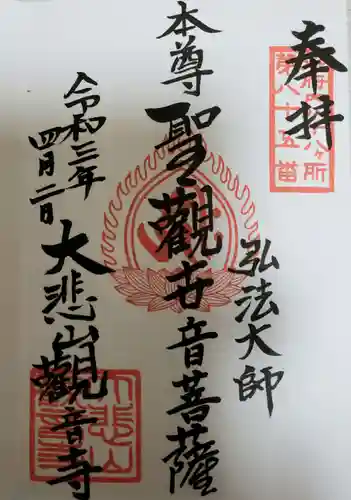 奉拝
第八十五番
弘法大師
本尊
聖觀世音菩薩
令和三年
四月二日
大悲山觀音寺